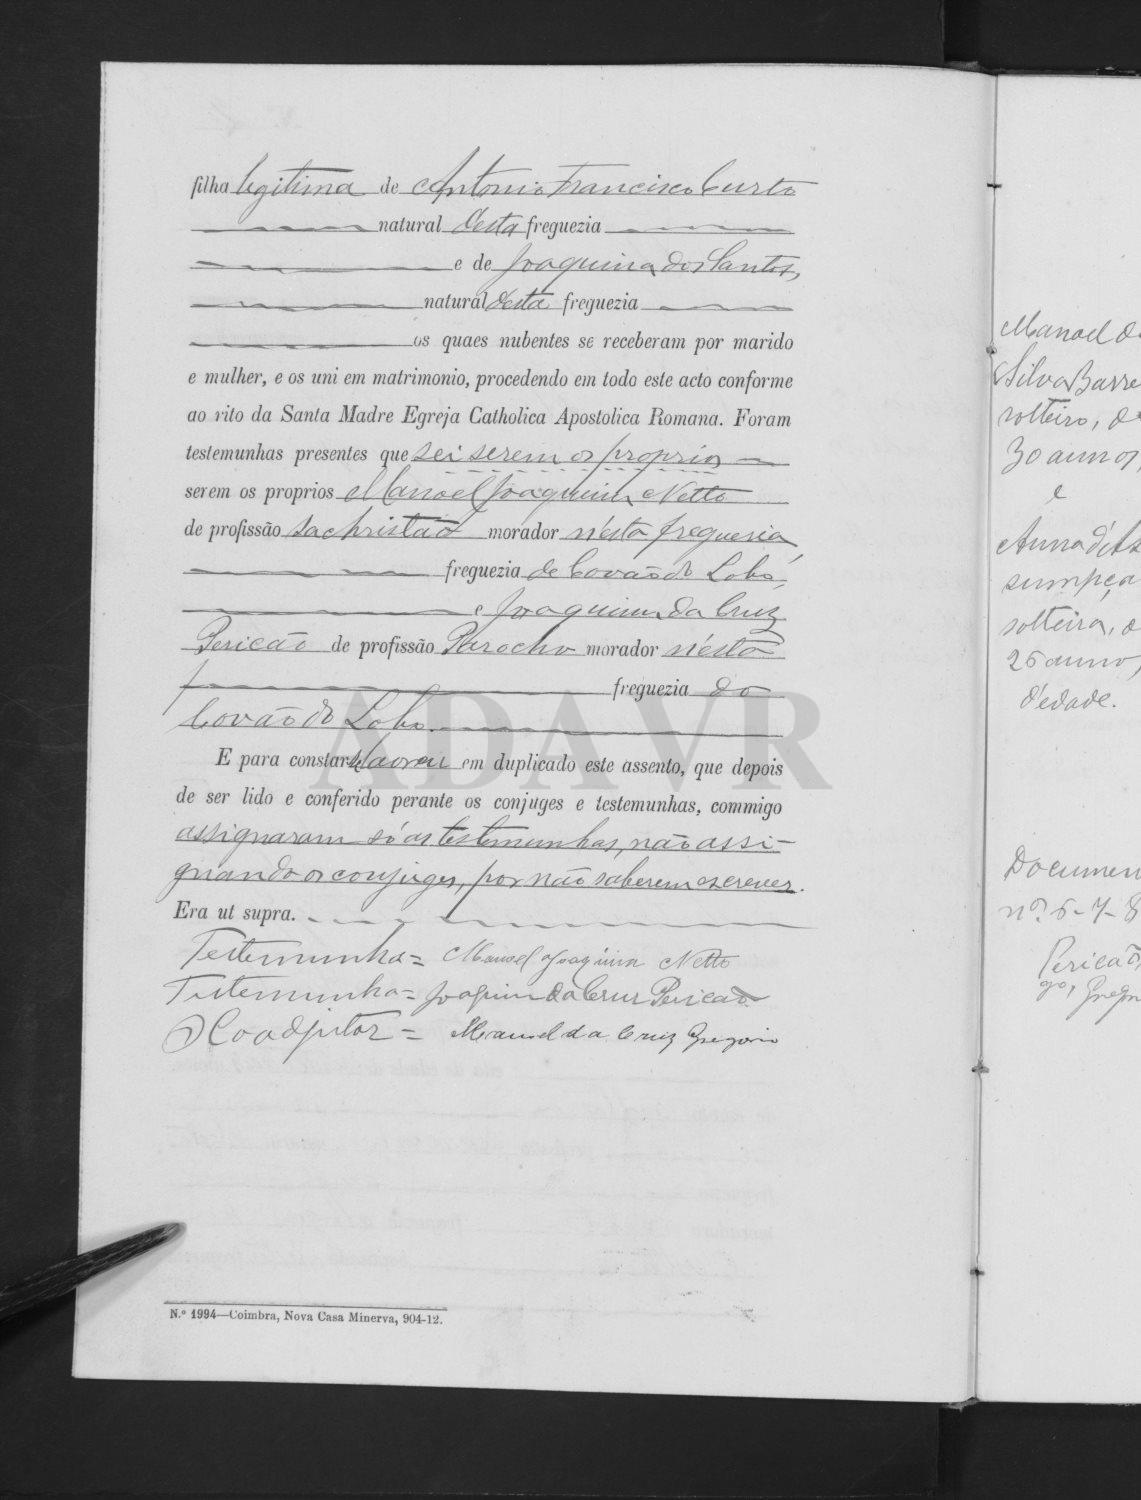 filha legitima de Antonio Francisco Curto
natural desta freguezia
e de Joaquina dos Santos,
natural desta freguezia
os quaes nubentes se receberam por marido
e mulher, e os uni em matrimonio, procedendo em todo este acto conforme
ao rito da Santa Madre Egreja Catholica Apostolica Romana. Foram
testemunhas presentes que sei serem os proprios
serem os proprios Manoel Joaquim Netto
de profissão sachristão morador n'esta freguesia
freguezia de Covão do Lobo,
e Joaquim da Cruz
Pericão de profissão Parocho morador n'esta
freguezia do
Covão do Lobo.
E para constar lavrei em duplicado este assento, que depois
de ser lido e conferido perante os conjuges e testemunhas, commigo
assignaram só as testemunhas, não assi-
gnando os conjuges, por não saberem escrever.
Era ut supra.
Testemunha = Manoel Joaquim Netto
Testemunha = Joaquim da Cruz Pericão
O Coadjutor = Manoel da Cruz Gregorio
N.º 1994—Coimbra, Nova Casa Minerva, 904-12.
ADAVR
Manoel da
Silva Barre
solteiro, de
30 annos,
e
Anna d'As
sumpça
solteira, d
26 anno,
d'edade.
Documen
nº 6-7-8
Pericão,